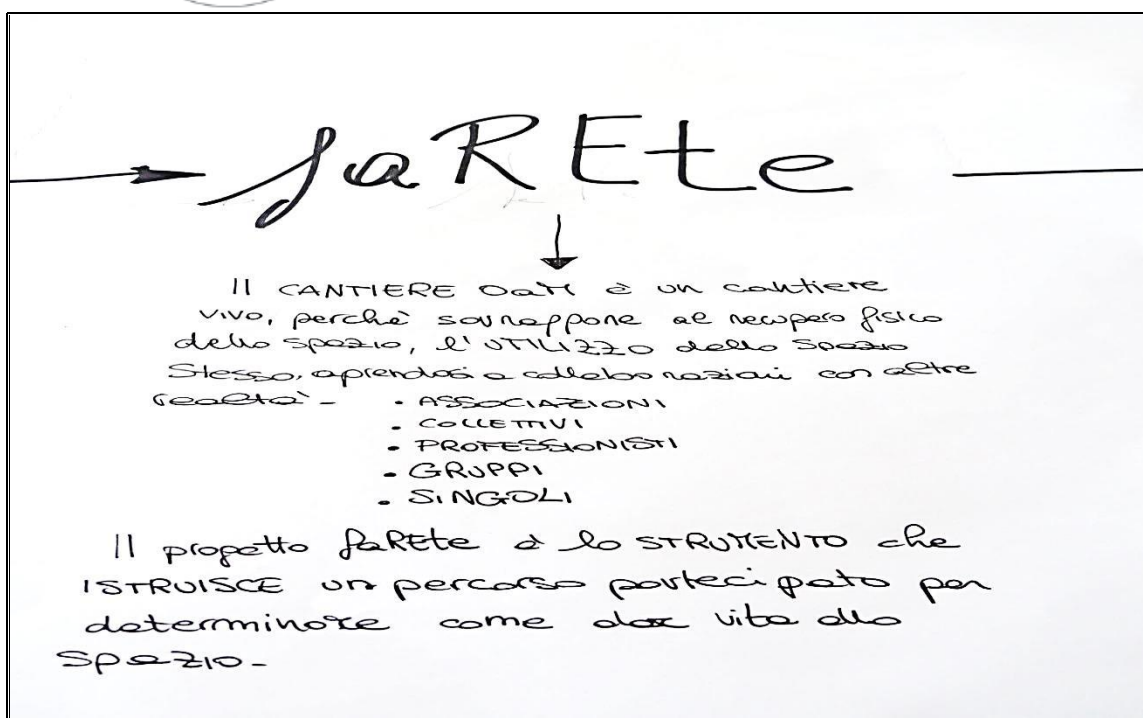 faREte
Il CANTIERE OaM è un cantiere
vivo, perchè sovrappone al recupero fisico
dello spazio, l'UTILIZZO dello spazio
stesso, aprendosi a collaborazioni con altre
realtà -
• ASSOCIAZIONI
• COLLETTIVI
• PROFESSIONISTI
• GRUPPI
• SINGOLI
Il progetto faREte è lo STRUMENTO che
ISTRUISCE un percorso partecipato per
determinare come dar vita allo
spazio -